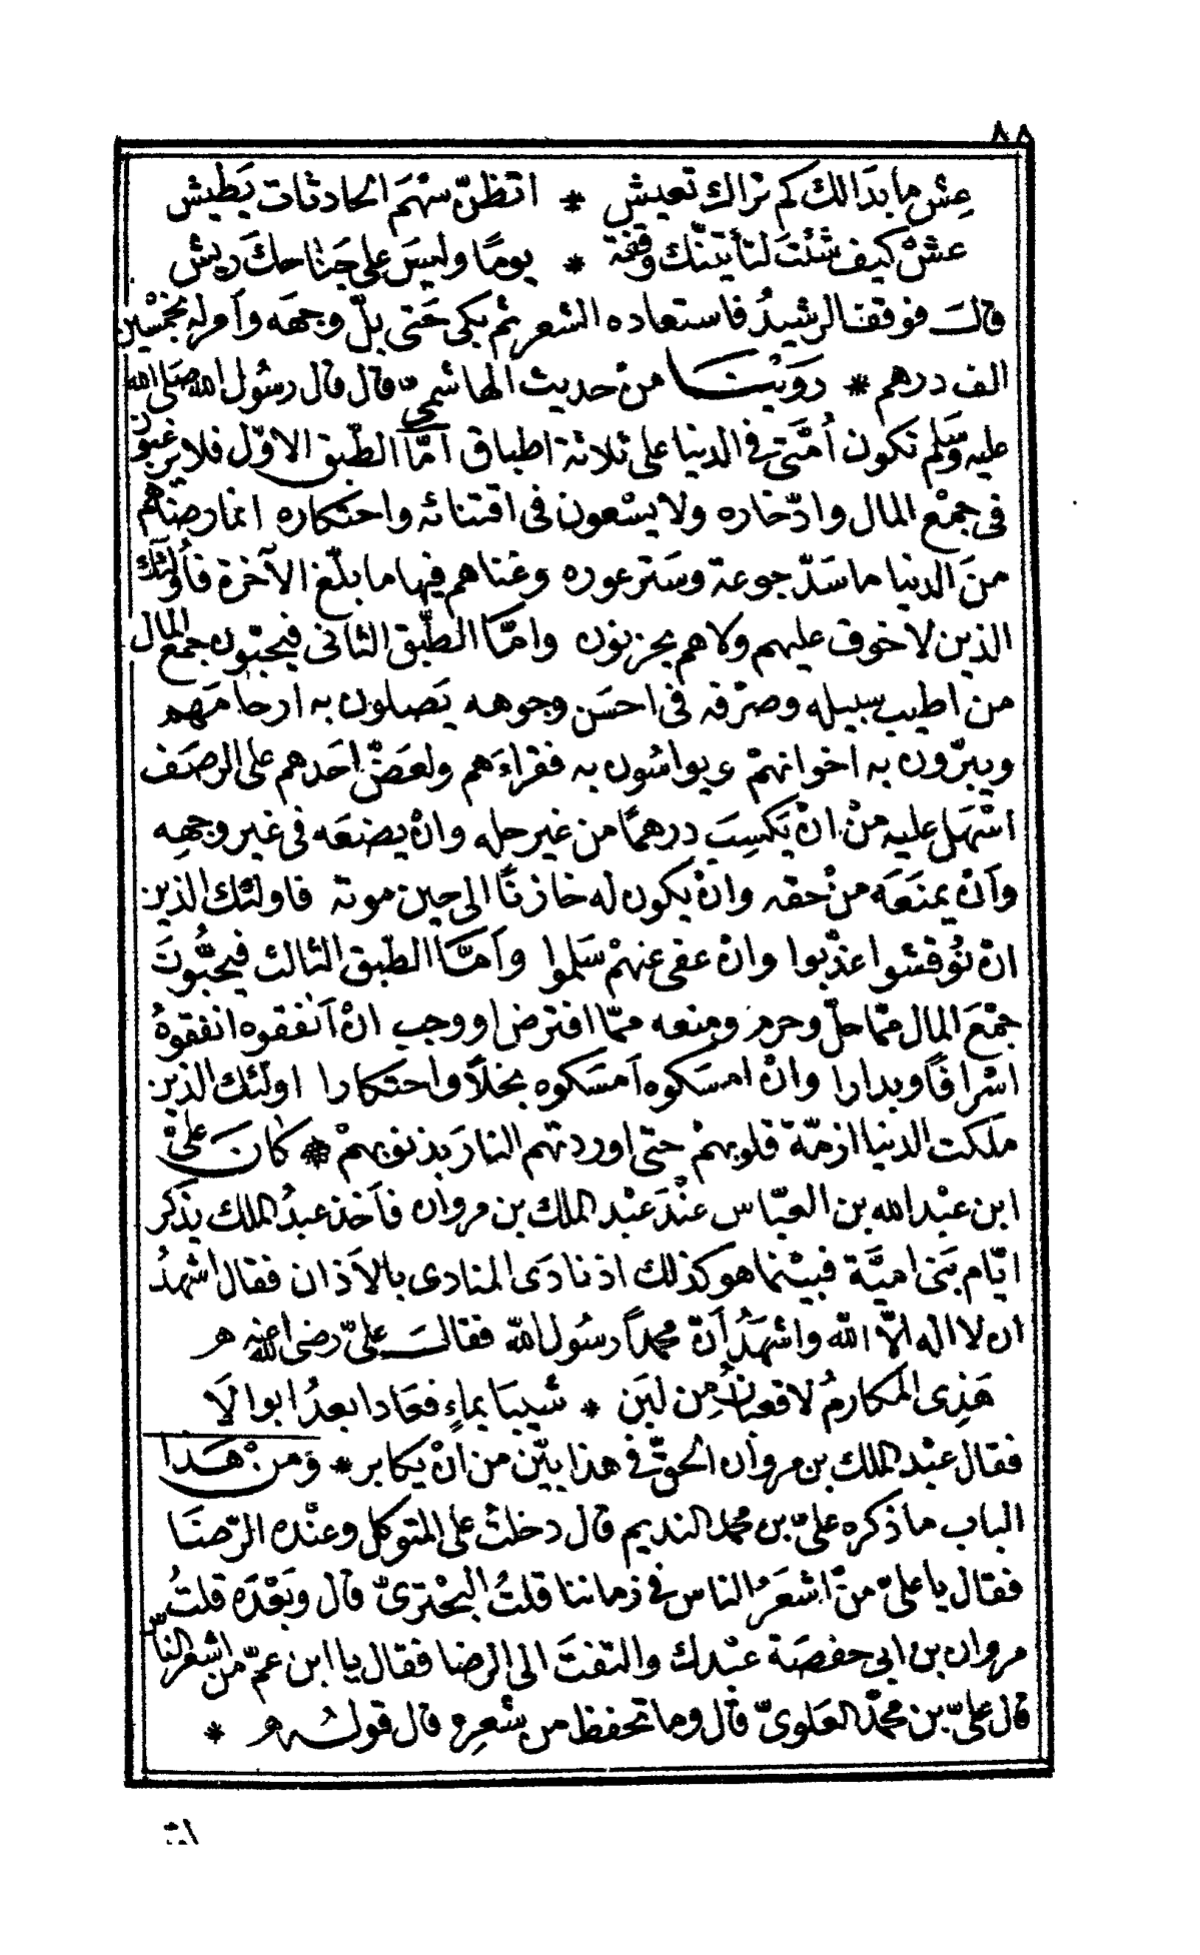 ٨٨
عِش ما بدَا لك كم تراك تعيش * اتظنّ سهمَ الحادثات يَطيش
عشْ كيف شئتَ لتأتينّك وقفة * يومًا وليسَ على جَناحك ريش
قالـَ فوقفنا الرشيدُ فاستعاده الشعر ثم بكى حَتى بلّ وجهه وأمر له بخمْسين
الف درهم * رَوَيْنـَا منْ حديث الهاشميّ قال قال رسُول الله صَلى الله
عليه وسَلم تكون أمّتى فى الدنيا على ثلاثة اطباق أمّا الطّبق الاوّل فلا يرغبون
فى جمْع المال وادّخاره ولا يسْعون فى اقتنائه واحتكاره انما رضاهم
منَ الدنيا ما سَدّ جوعة وسَتر عوره وغناهم فيها ما بلّغ الآخرة فأولئك
الذين لا خوف عليهم ولا هم يحزنون وامّا الطّبق الثانى فيحبّون جمع المال
من اطيب سبيله وصرْفه فى احسَن وجوهه يَصلون به ارحامَهم
ويبرّون به اخوانهمْ ويواسُون به فقراءَهم ولعَضّ احَدهم على الرصَف
اسْهَل عليه منْ انْ يَكسِبَ درهمًا من غير حله وانْ يضعَه فى غير وجهِه
وأنْ يمنَعَه منْ حقه وانْ يكون له خازنًا الى حين موته فاولئك الذين
انْ نُوقشوا عذّبوا وانْ عفى عنهمْ سَلموا وأمّا الطّبق الثالث فيحبُّونَ
جمْعَ المال ممّا حلّ وحرم ومنعه ممّا افترض او وجب انْ أنفقوه انفقوهُ
اسْرافًا وبدارا وانْ امسَكوه أمسَكوه بخلاً واحتكارا اولئك الذين
ملكت الدنيا ازمّة قلوبهمْ حتى اوردتهم النارَ بذنوبهمْ * كانَ علىّ
ابن عبْد الله بن العبّاس عنْدَ عبْد الملك بن مروان فأخذ عبدُ الملك يذكر
ايّام بَنى اميَّة فبيْنما هو كذلك اذ نادَى المنادى بالأذان فقال اشهدُ
ان لا اله الّا اللّه واشهَدُ أنّ محمّداً رسُول اللّه فقالـَ علىّ رضى الله عنه هـ
هَذِى المكارمُ لا قعبانُ مِن لبَن * شيبَا بماءٍ فعَادا بعدُ ابوالَا
فقال عبْد الملك بن مروان الحقّ فى هذا بيّن من انْ يكابر * ومنْ هَذا
الباب ما ذكره علىّ بن محمد النديم قال دخلتُ على المتوكل وعنْده الرّضَا
فقال يا علىّ منْ اشعَرُ الناس فى زماننا قلتُ البحْترىّ قال وبَعْدَه قلتُ
مروان بن ابى حفصَة عبْدك والتفتَ الى الرضا فقال يا ابن عمّ من اشعر الناس
قال علىّ بن محمّد العَلوىّ قال وما تحفظ من شعرِه قال قولـُه هـ *